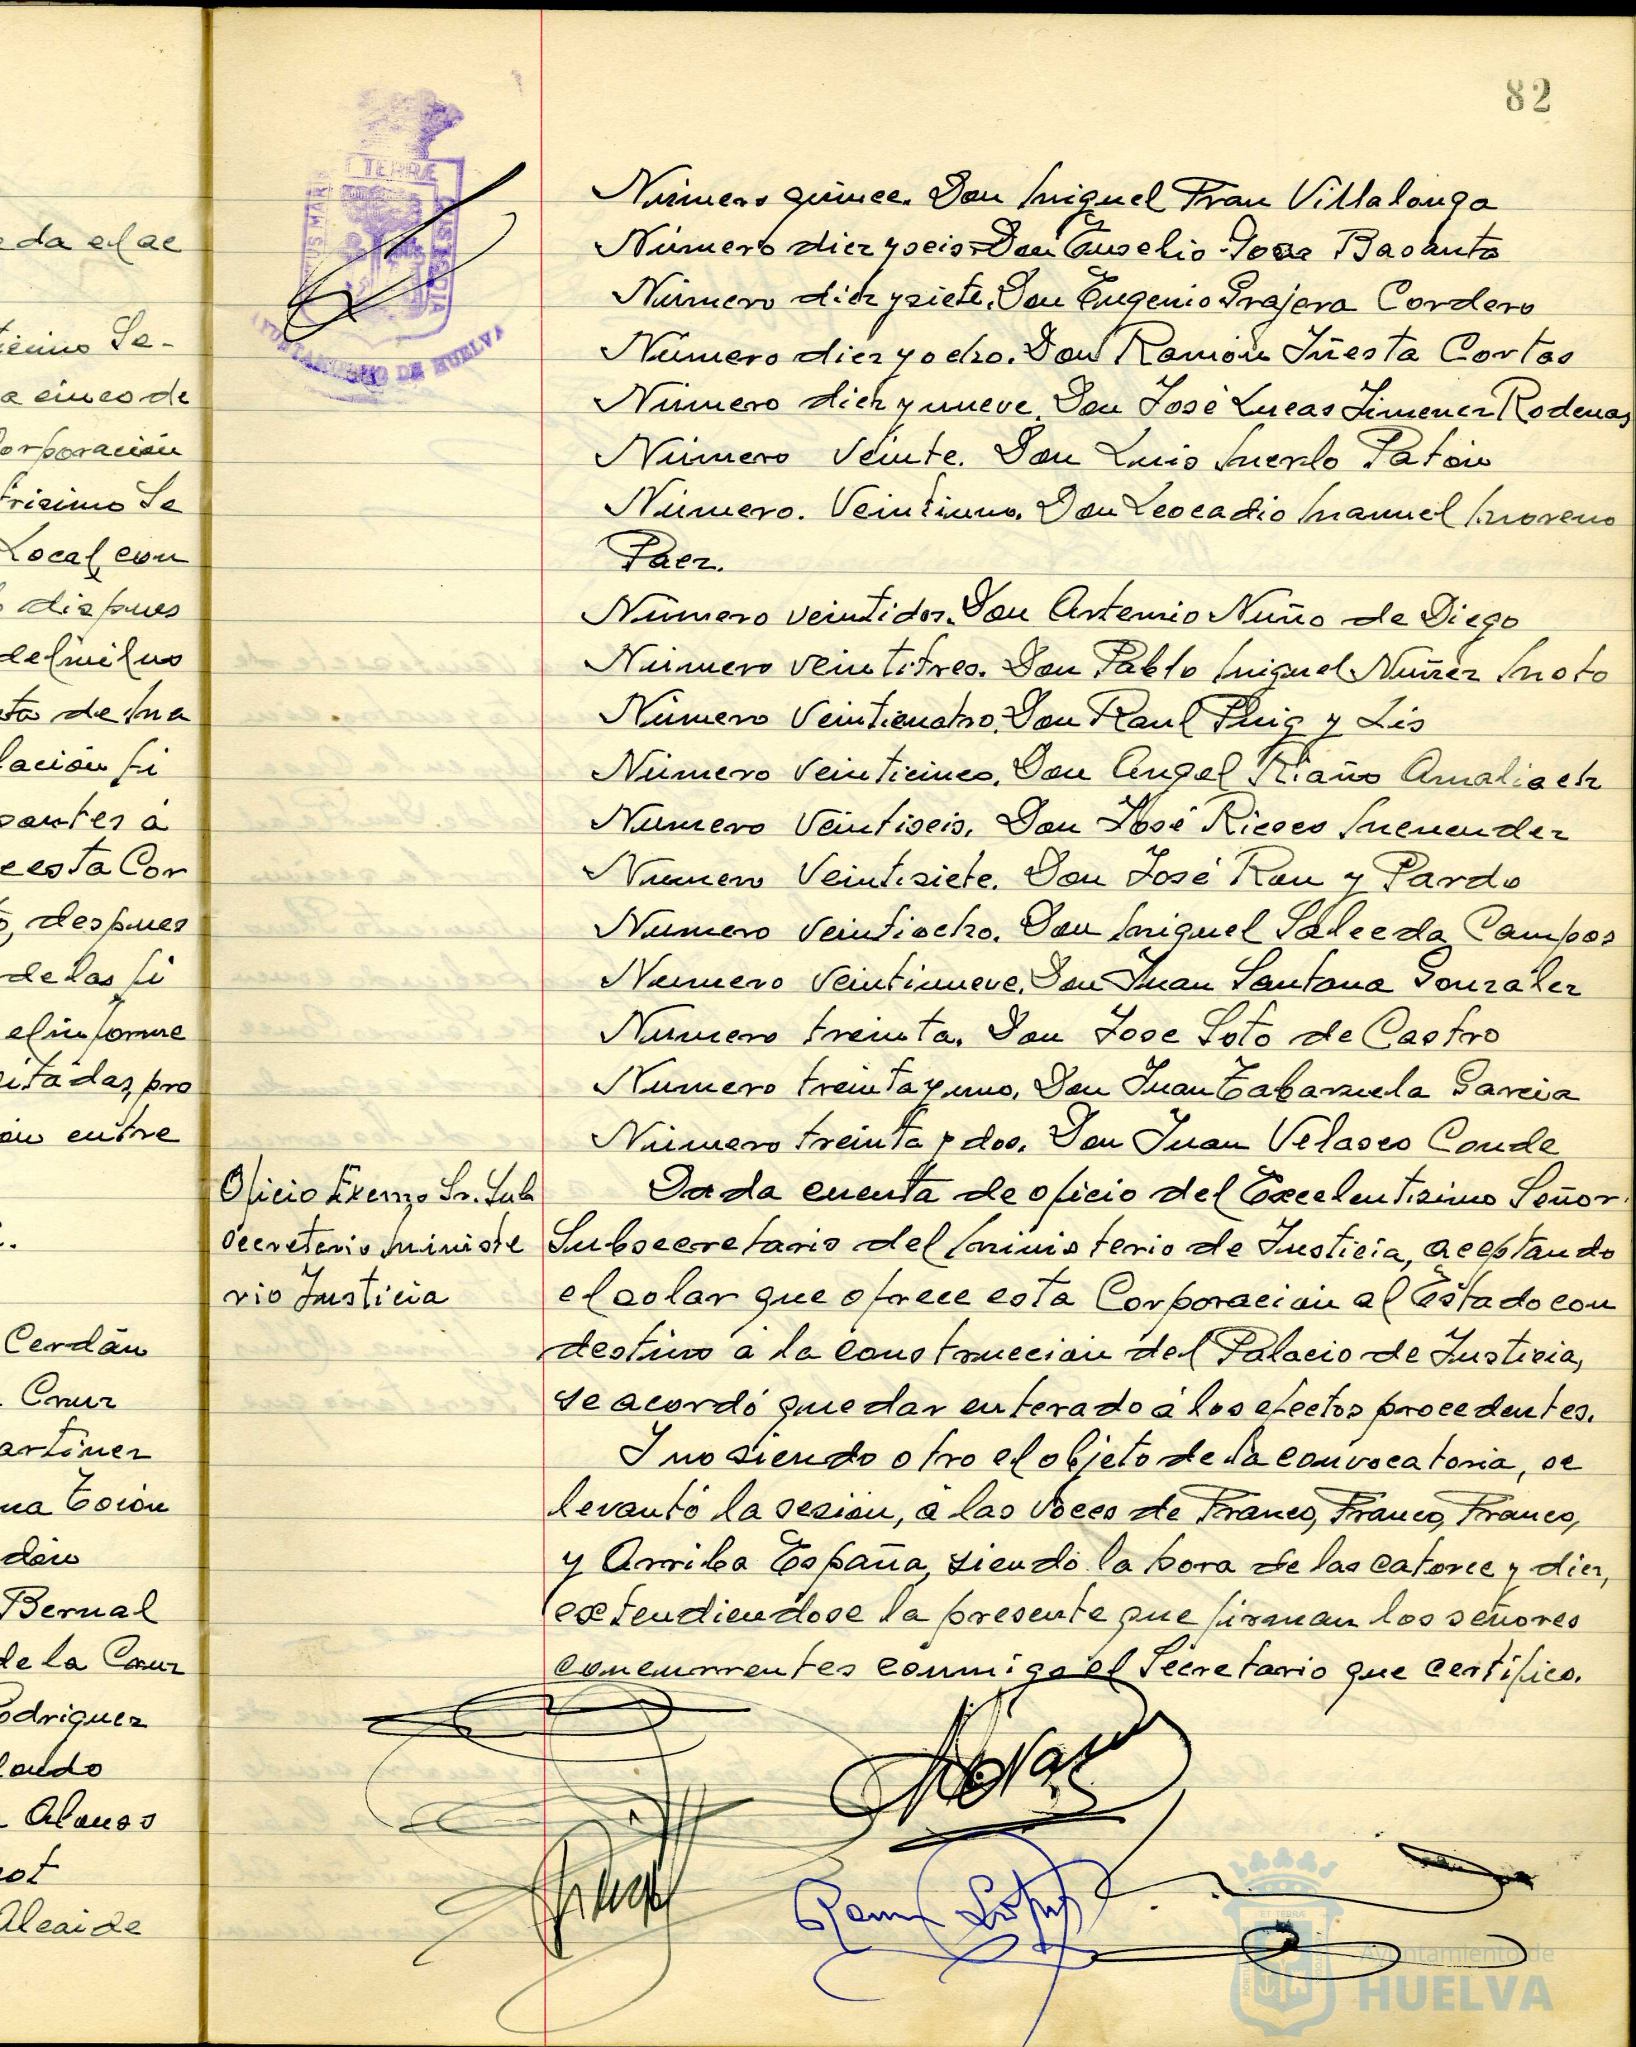 82
da el ac
Se-
a cinco de
orporación
trisimo Se
Local, con
dispues
ta de Ma
lación fi
santes á
e esta Cor
, despues
de las fi
el informe
citadas, pro
entre
Cerdán
Cruz
artinez
na Tosión
Bernal
de la Cruz
odriguez
Alonso
Alcaide
ET TERRÆ
AYUNTAMIENTO DE HUELVA
Número quince. Don Miguel Fran Villalonga
Número diez y seis. Don Eusebio Basanta
Número diez y siete. Don Eugenio Grajera Cordero
Número diez y ocho. Don Ramón Iñesta Cortas
Número diez y nueve. Don José Lucas Jimenez Rodenas
Número veinte. Don Luis Merlo Patón
Número. Veintiuno. Don Leocadio Manuel Moreno
Paez.
Número veintidos. Don Artemio Nuño de Diego
Número veintitres. Don Pablo Miguel Nuñez Moto
Número veinticuatro. Don Raul Puig y Lis
Número veinticinco. Don Angel Riaño
Número veintiseis. Don José Riesco Menendez
Número veintisiete. Don José Ron y Pardo
Número veintiocho. Don Miguel Salceda Campos
Número veintinueve. Don Juan Santana Gonzalez
Número treinta. Don Jose Soto de Castro
Número treinta y uno. Don Juan Tabarzuela Garcia
Número treinta y dos. Don Juan Velasco Conde
Oficio Excmo Sr. Sub
secretario Ministe
rio Justicia
Dada cuenta de oficio del Excelentisimo Señor
Subsecretario del Ministerio de Justicia, aceptando
el solar que ofrece esta Corporación al Estado con
destino á la construcción del Palacio de Justicia,
se acordó quedar enterado á los efectos procedentes.
Y no siendo otro el objeto de la convocatoria, se
levantó la sesión, á las voces de Franco, Franco, Franco,
y Arriba España, siendo la hora de las catorce y diez,
extendiendose la presente que firman los señores
concurrentes conmigo el Secretario que certifico.
Ayuntamiento de
HUELVA